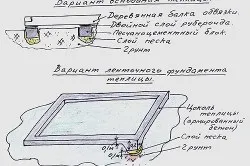 Вариант основания теплицы.
Деревянная балка обвязки
Двойной слой рубероида
Песчаноцементный блок
Слой песка
Грунт
Вариант ленточного фундамента
теплицы.
Цоколь
теплицы
(армированный
бетон)
Слой песка
Грунт